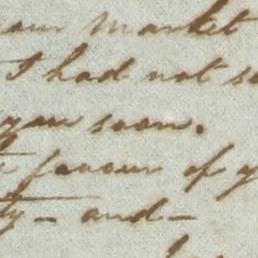 our market
I had not s
you soon.
favour of y
ty – and –